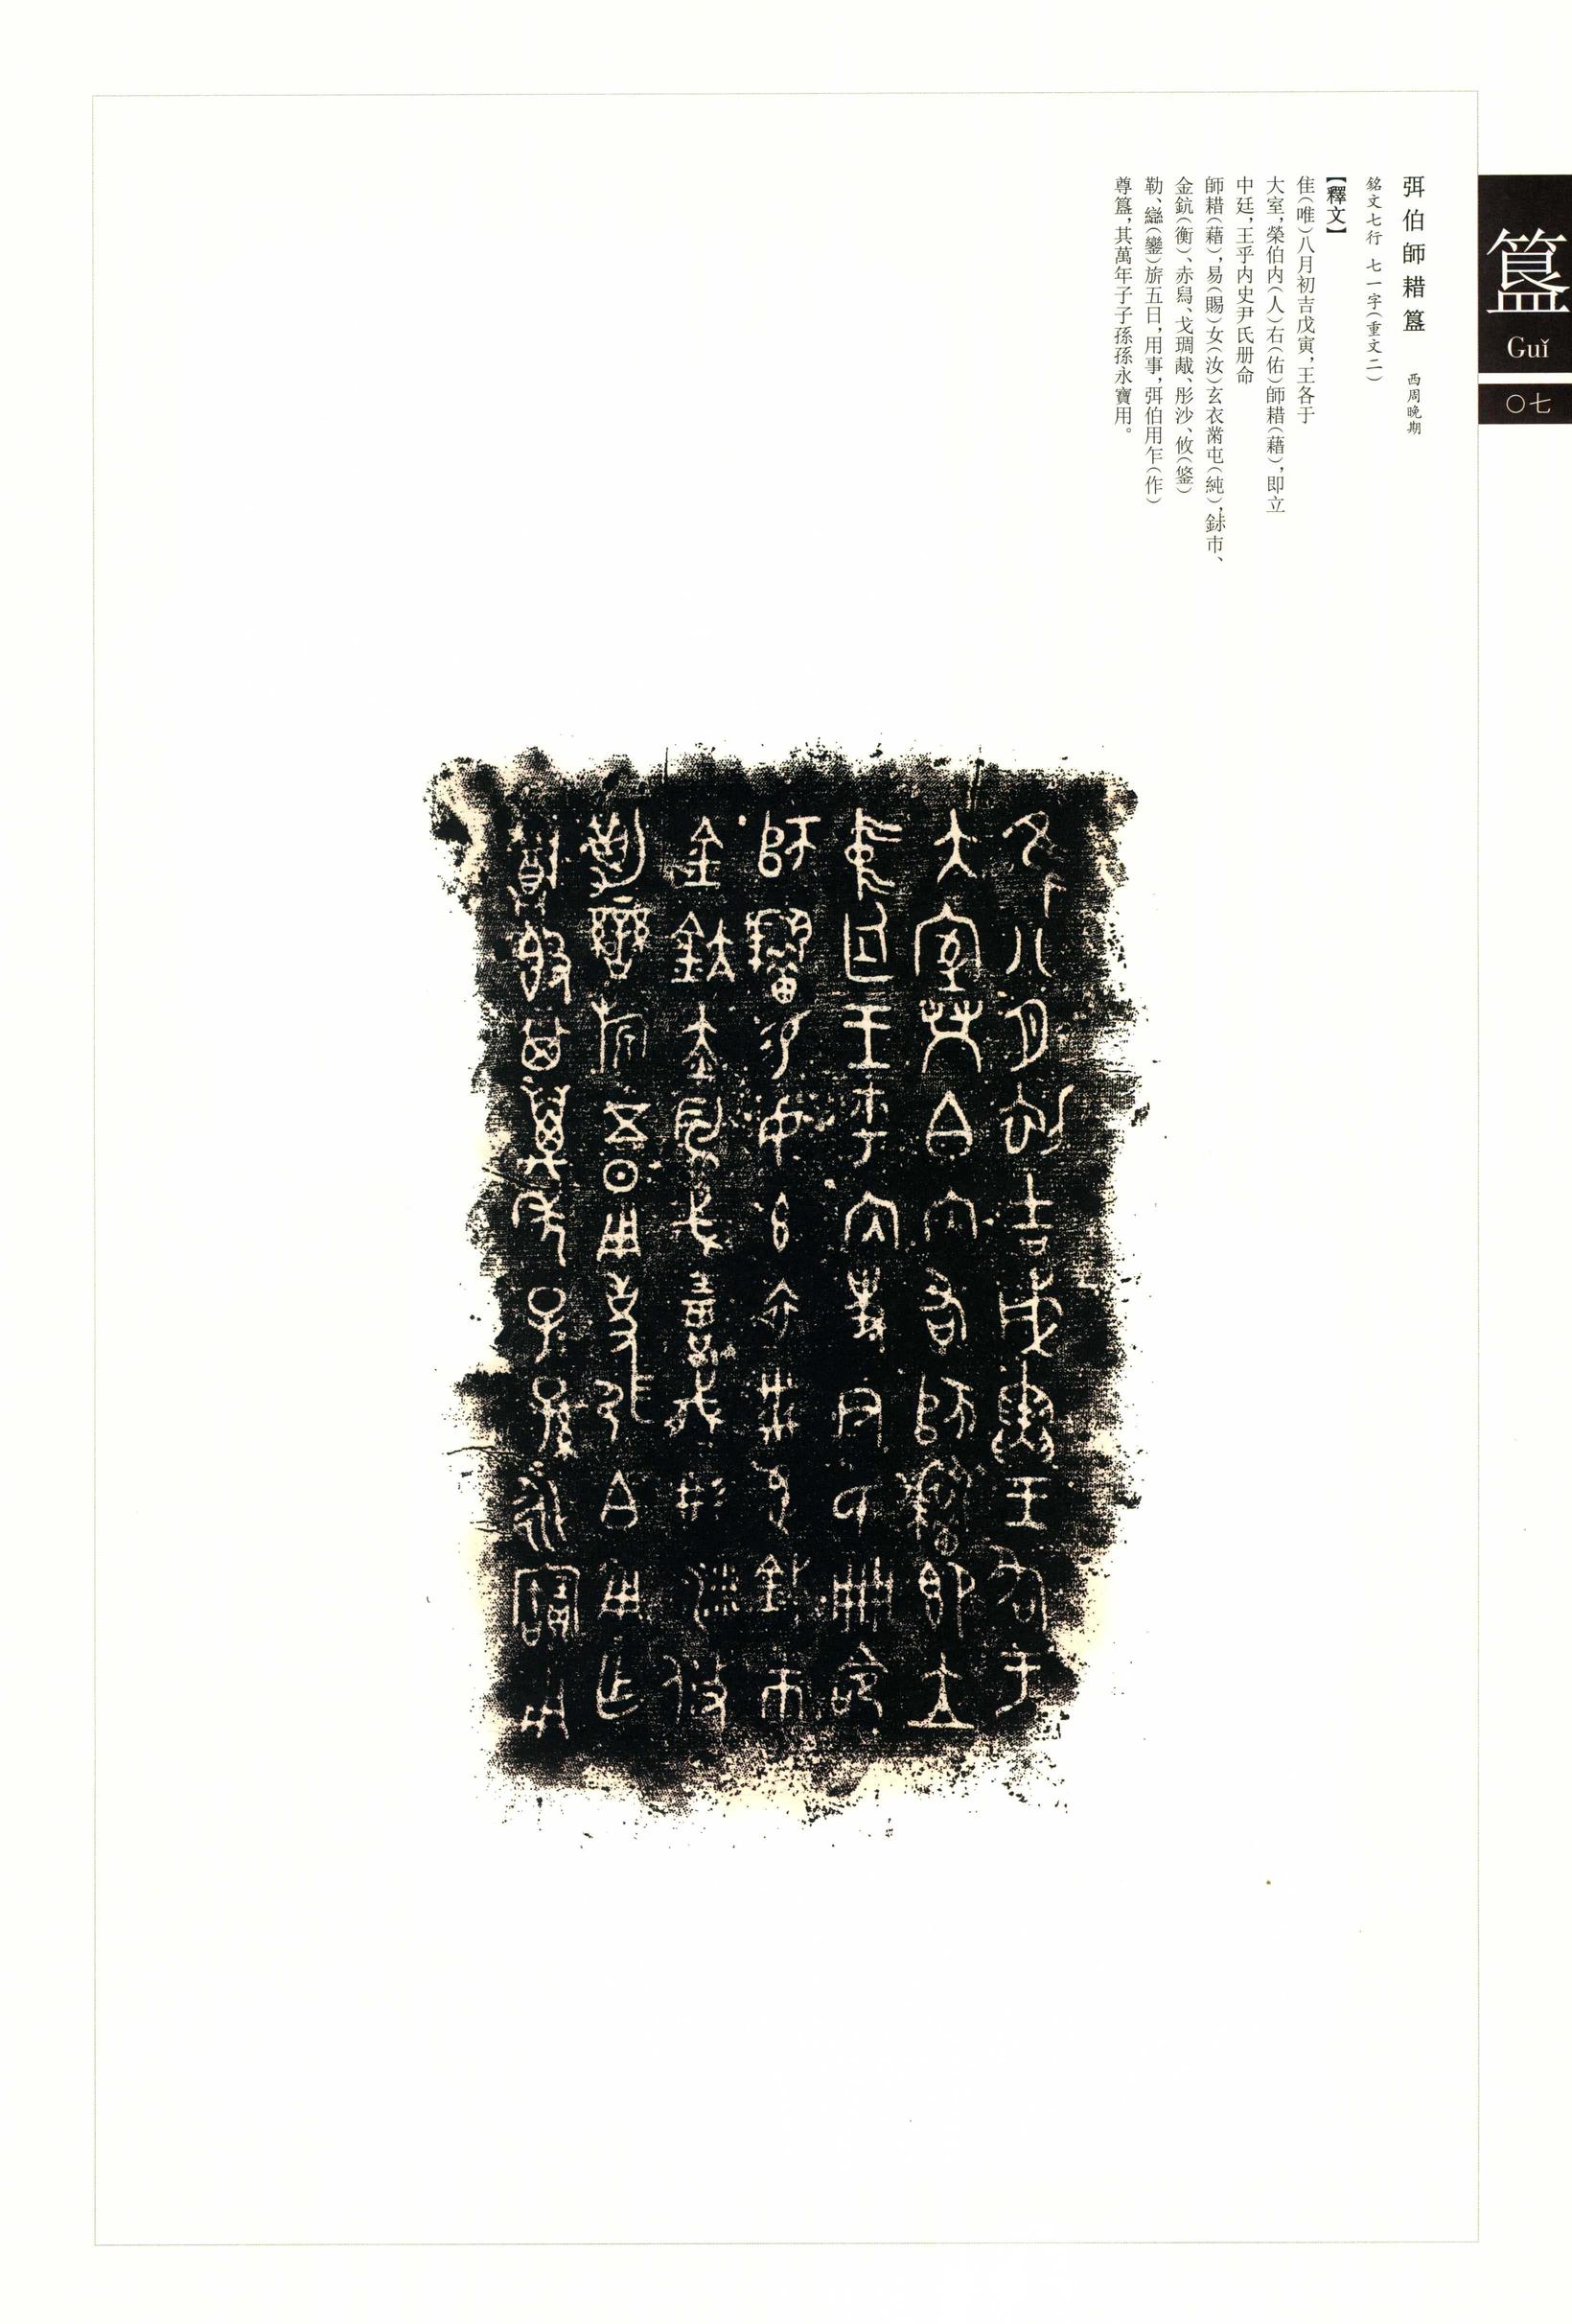 簋
Guǐ
〇七
弭伯師耤簋 西周晚期
銘文七行 七一字(重文二)
【釋文】
隹(唯)八月初吉戊寅,王各于
大室,榮伯内(入)右(佑)師耤(藉),即立
中廷,王乎内史尹氏册命
師耤(藉),易(賜)女(汝)玄衣黹屯(純),鉥市、
金鈧(衡)、赤舄、戈琱䵼、彤沙、攸(鋚)
勒、䜌(鑾)旂五日,用事,弭伯用乍(作)
尊簋,其萬年子子孫孫永寶用。